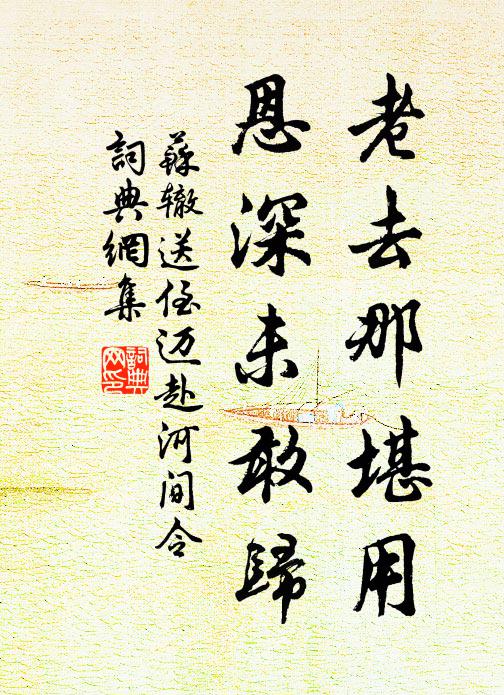 老去那堪用
恩深未敢歸
蘇轍送侄迈赴河间令
詞典網集
詞典
网印